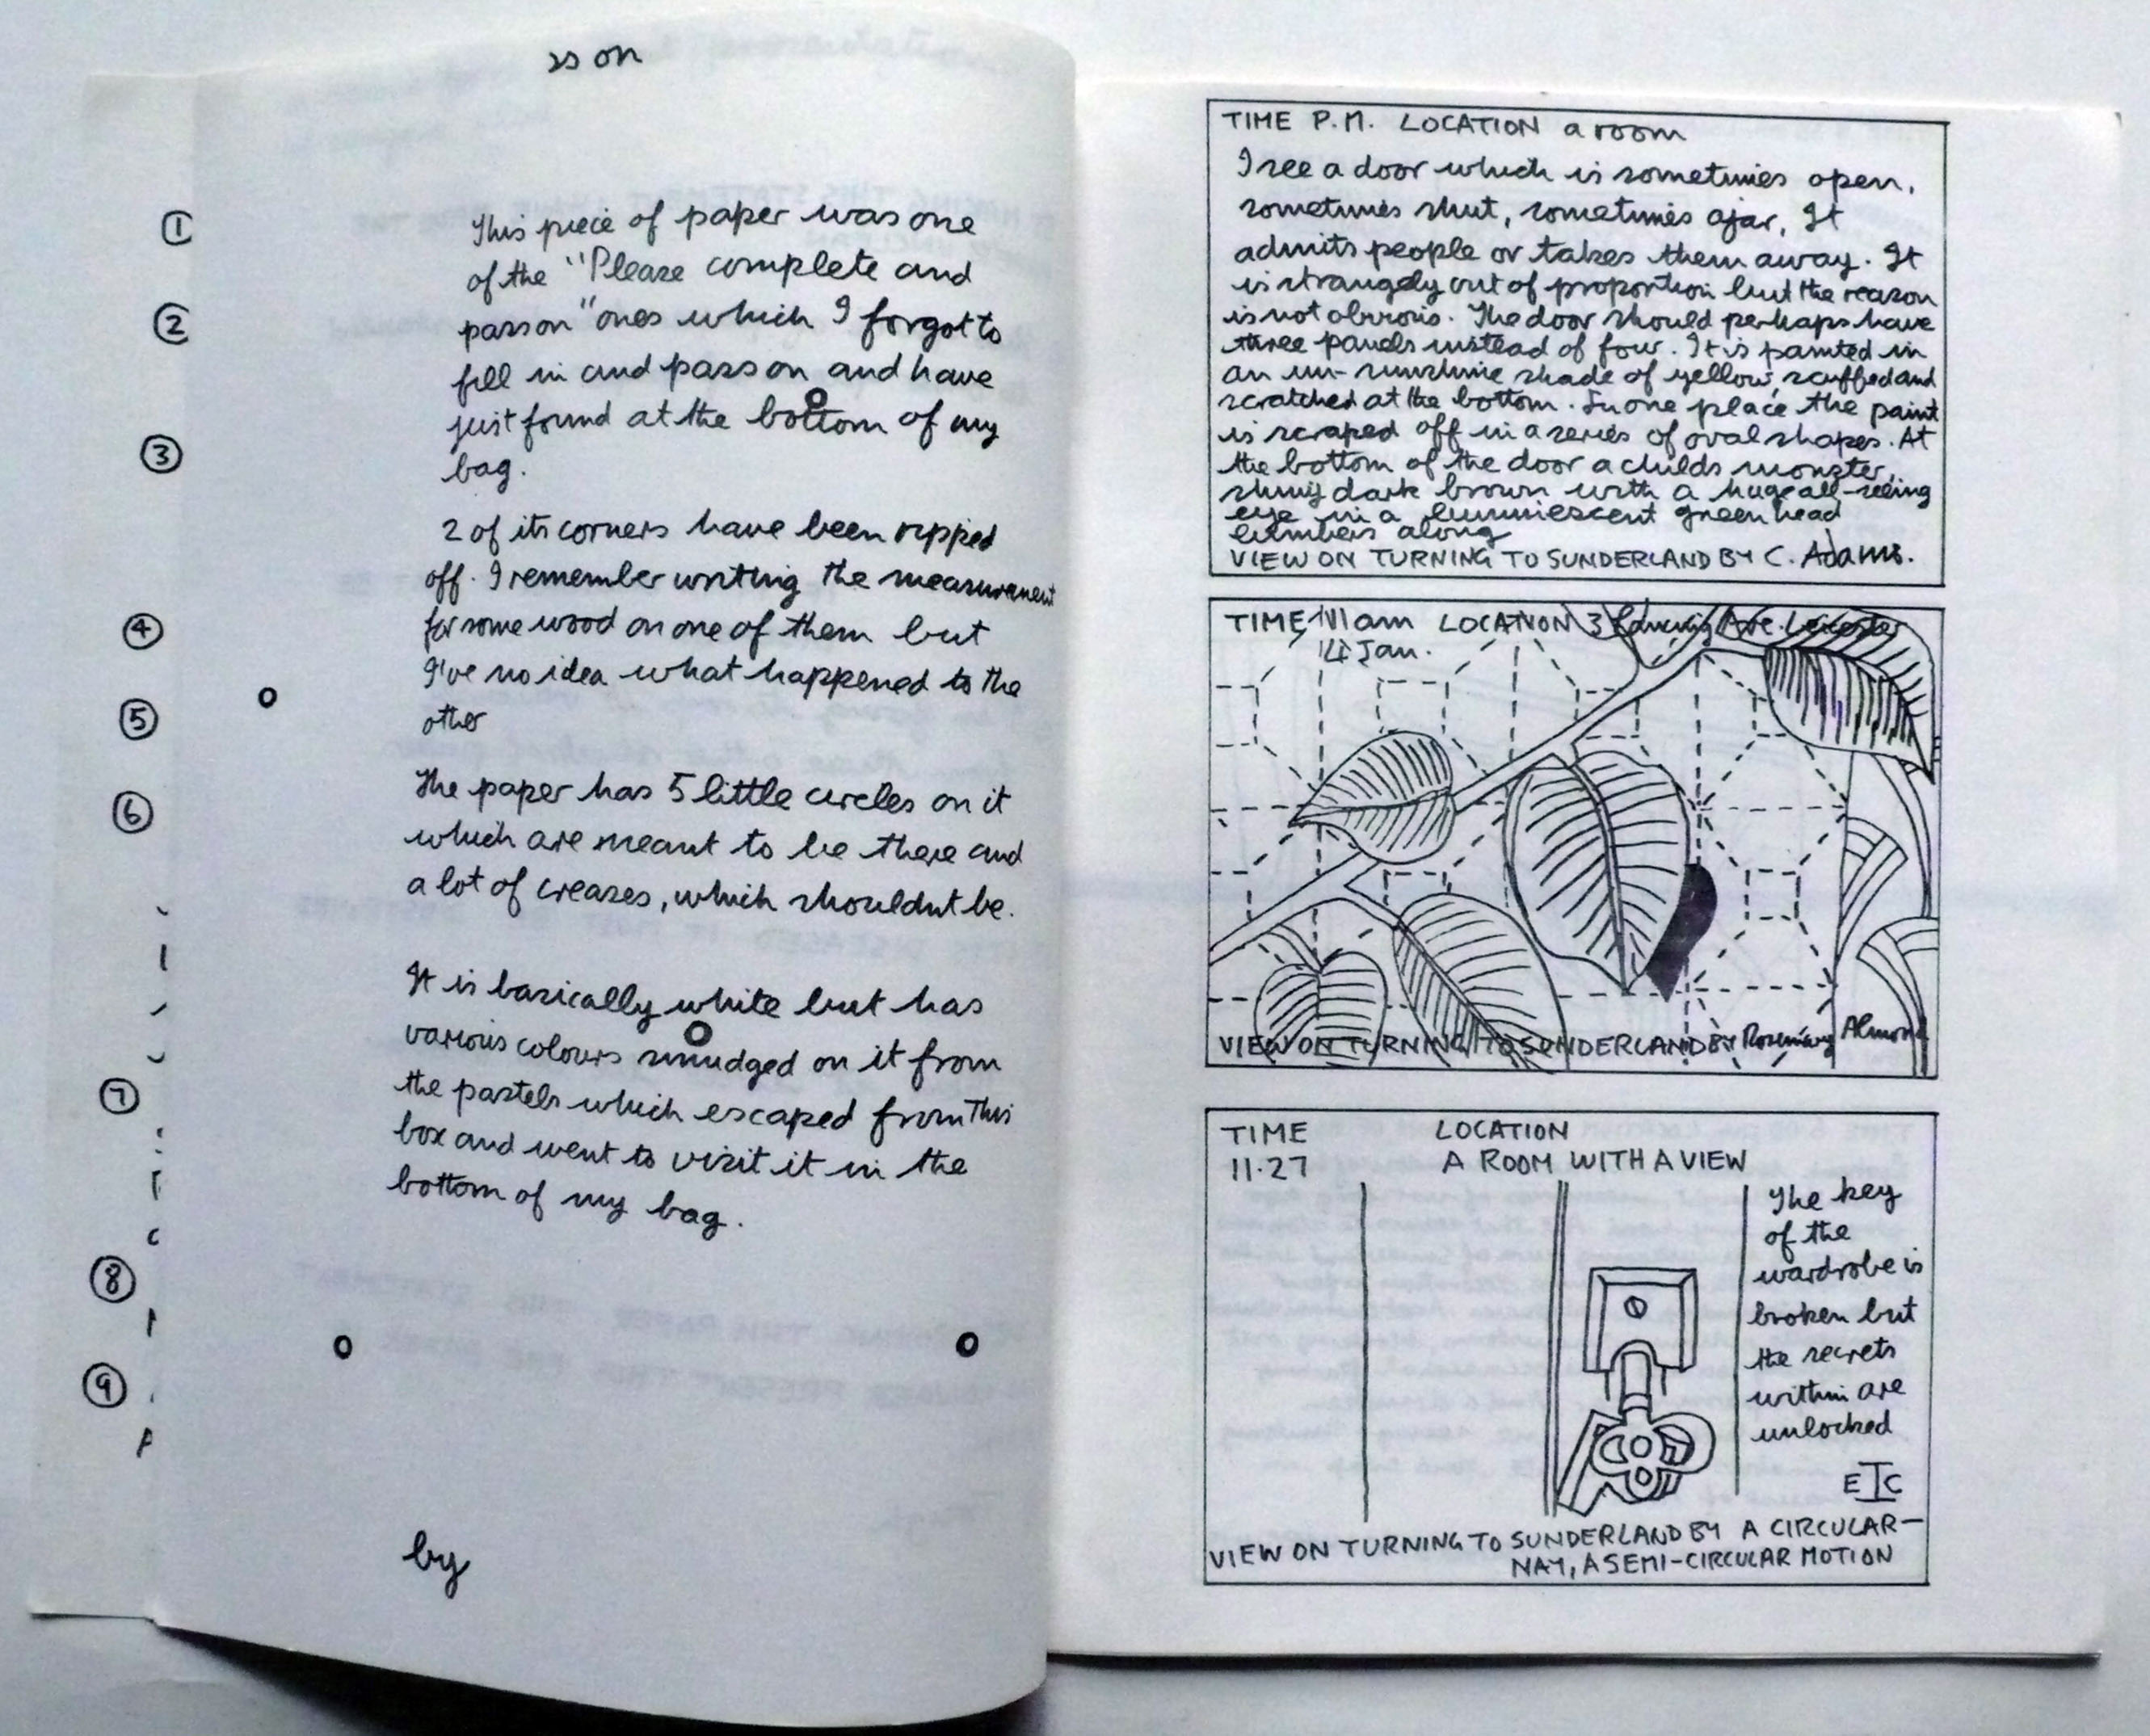 ss on
①
②
③
④
⑤
⑥
⑦
⑧
⑨
This piece of paper was one
of the "Please complete and
pass on" ones which I forgot to
fill in and pass on and have
just found at the bottom of my
bag.
2 of its corners have been ripped
off. I remember writing the measurement
for some wood on one of them but
I've no idea what happened to the
other
The paper has 5 little circles on it
which are meant to be there and
a lot of creases, which shouldnt be.
It is basically white but has
various colours smudged on it from
the pastels which escaped from this
box and went to visit it in the
bottom of my bag.
by
TIME P.M. LOCATION a room
I see a door which is sometimes open,
sometimes shut, sometimes ajar, It
admits people or takes them away. It
is strangely out of proportion but the reason
is not obvious. The door should perhaps have
three panels instead of four. It is painted in
an un-sunshine shade of yellow, scuffed and
scratched at the bottom. In one place the paint
is scraped off in a series of oval shapes. At
the bottom of the door a childs monster,
shiny dark brown with a huge all-seeing
eye in a luminescent green head
lumbers along
VIEW ON TURNING TO SUNDERLAND BY C. Adams.
TIME 11am LOCATION 3 Ave. Leicester
14 Jan.
VIEW ON TURNING TO SUNDERLAND BY Rosemary Almond
TIME LOCATION
11.27 A ROOM WITH A VIEW
The key
of the
wardrobe is
broken but
the secrets
within are
unlocked
EIC
VIEW ON TURNING TO SUNDERLAND BY A CIRCULAR-
NAY, A SEMI-CIRCULAR MOTION